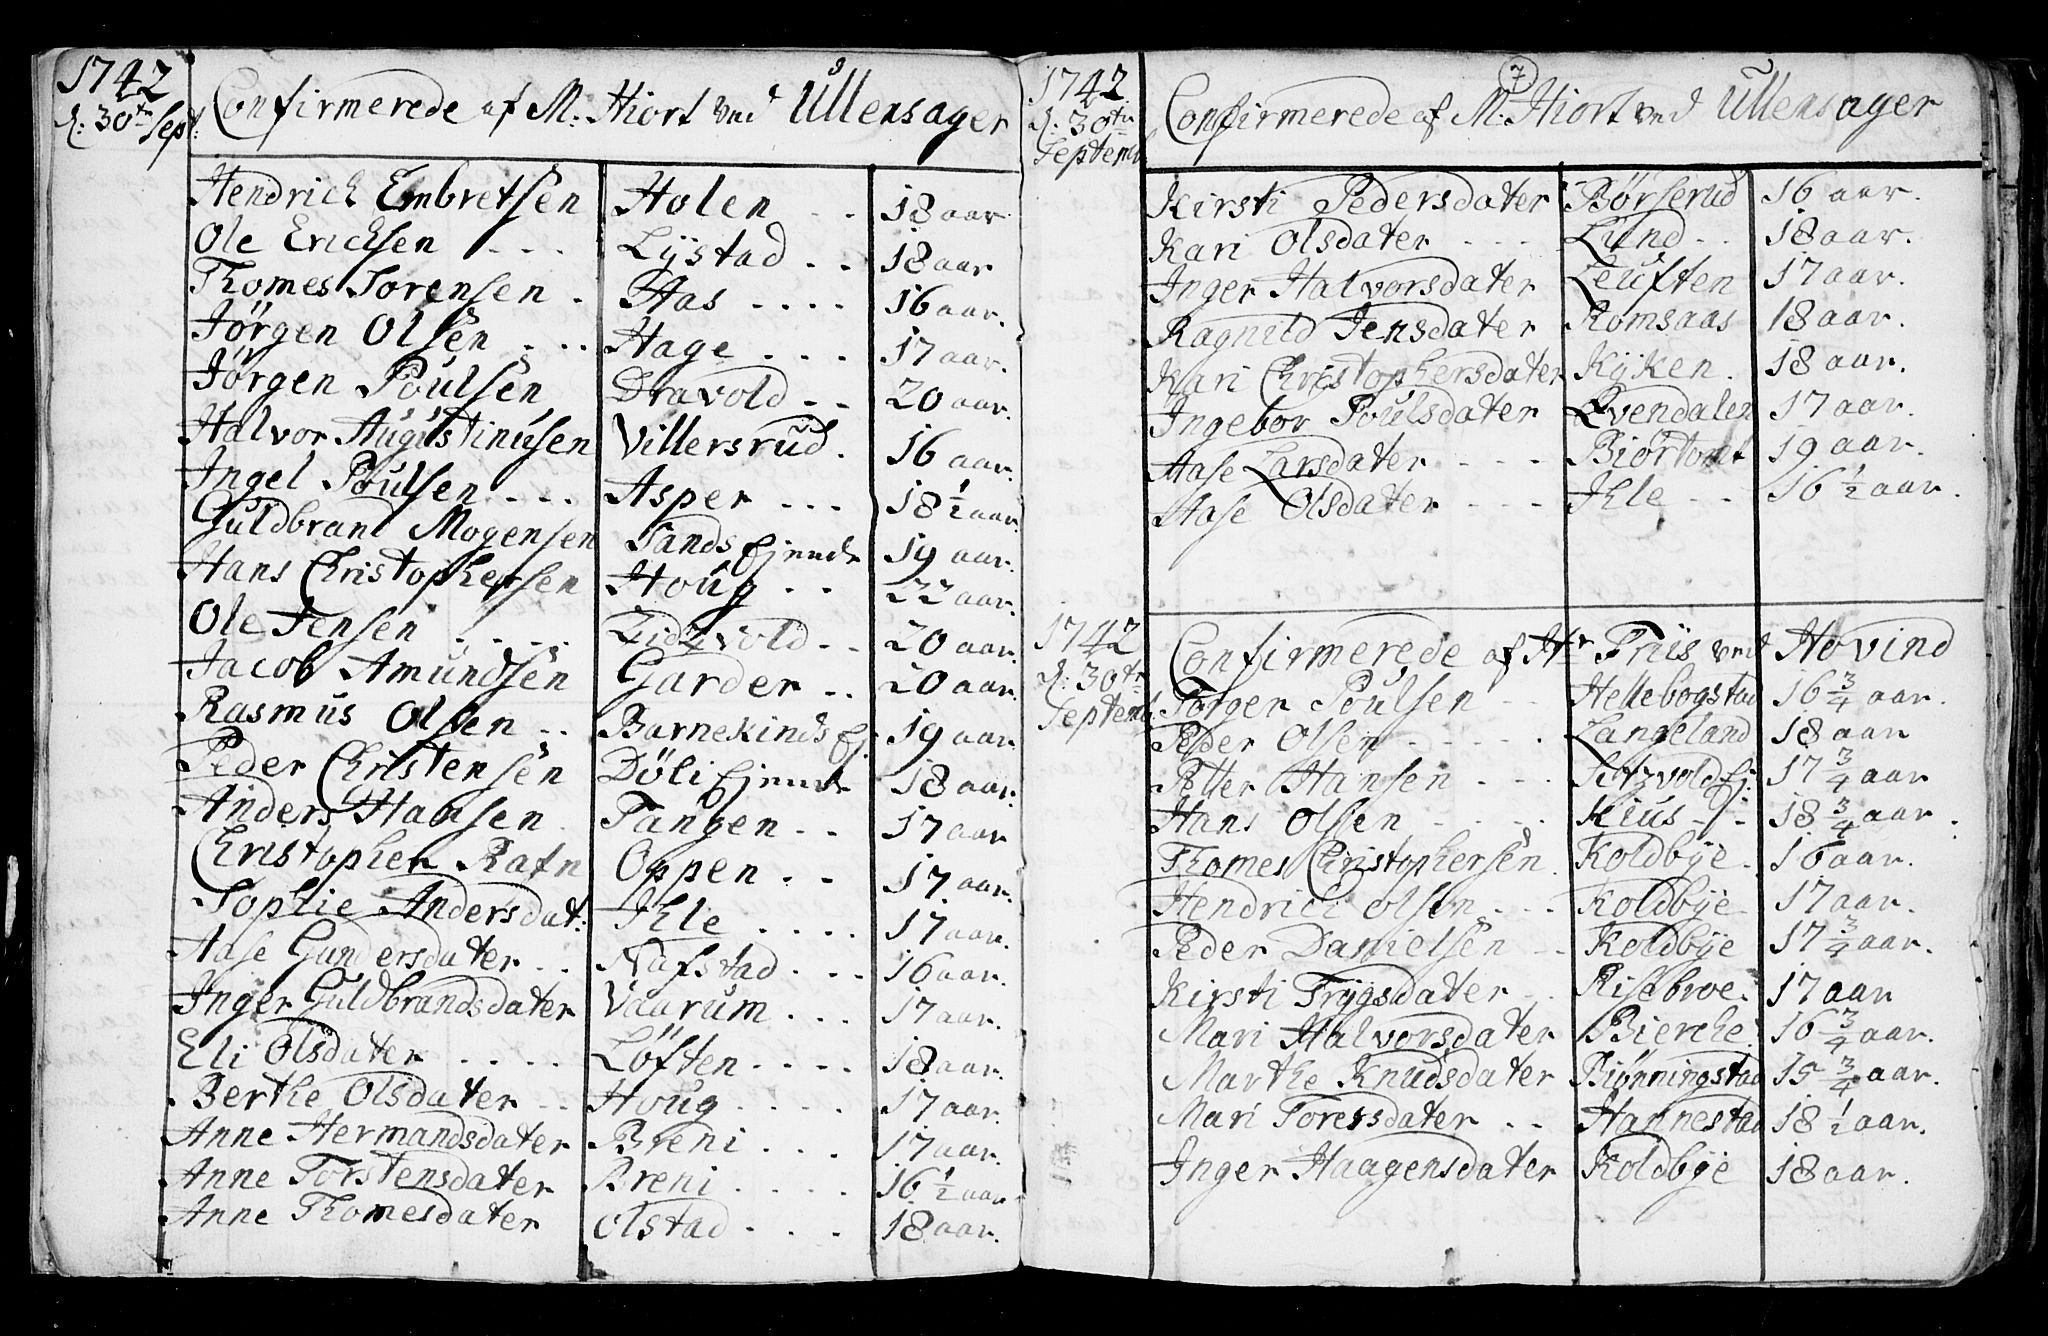 1742
d: 30te Sept:
Confirmerede af M: Hiort ved Ullensager
Hendrich Embretsen Holen - - 18 aar
Ole Erichsen - - - Lÿstad - - 18 aar
Thomes Sorensen - Aas - - - - 16 aar.
Jörgen Olsen - - - Hage - - - 17 aar.
Jörgen Poulsen Dravold - - 20 aar.
Halvor Augustinusen Villersrud. 16 aar.
Ingel Poulsen - - - Asper - - - 18 1/2 aar
Guldbrand Mogensen Tands Ejende 19 aar.
Hans Christophersen Houg - - 22 aar.
Ole Jensen - - - - Eidzvold - - 20 aar.
Jacob Amundsen Garder - - 20 aar.
Rasmus Olsen - - Barnekinds Ej: 19 aar.
Peder Christensen Döli Ejende 18 aar.
Anders Hansen Tangen - - 17 aar
Christopher Rafn Oppen - - 17 aar.
Sophie Andersdat: Ihle - - - - 17 aar.
Aase Gundersdater - - Nafstad - - - 16 aar.
Inger Guldbrandsdater Vaarum - - - 17 aar.
Eli Olsdater - - - - Löften - - - - 18 aar.
Berthe Olsdater - - Houg - - - - 17 aar.
Anne Hermandsdater Breni - - - 17 aar.
Anne Torstensdater Breni - - - - 16 1/2 aar
Anne Thomesdater Olstad - - - 18 aar.
7
1742
d: 30te
Septemb
Confirmerede af M: Hiort ved Ullensager
Kirsti Pedersdater Börserud 16 aar.
Kari Olsdater - - - Lund - - 18 aar.
Inger Halvorsdater Leuften 17 aar.
Ragnild Jensdater Romsaas 18 aar.
Kari Christophersdater Kÿken. 18 aar.
Ingebor Poulsdater Qvendalen 17 aar.
Aase Larsdater - - - Biørtomt 19 aar.
Aase Olsdater - - - Ihle - - 16 1/2 aar.
1742
d: 30te
Septemb.
Confirmerede af Hr Friis ved Hovind
Torger Poulsen - - Hellebogstad 16 3/4 aar.
Peder Olsen - - - - - Langeland 18 aar
Petter Hansen - - - Eidzvold Ej: 17 3/4 aar
Hans Olsen - - - - - Kius - - 18 3/4 aar.
Thomes Christophersen. Koldbÿe. 16 aar.
Hendrich Olsen - - - Koldbÿe 17 aar.
Peder Danielsen - - Koldbÿe 17 3/4 aar.
Kirsti Trÿgsdater - Risebroe. 17 aar
Mari Halvorsdater Bierche. 16 3/4 aar.
Marthe Knudsdater Biønningstad 15 3/4 aar.
Mari Toresdater - - Hannestad 18 1/2 aar.
Inger Haagensdater Koldbÿe 18 aar.